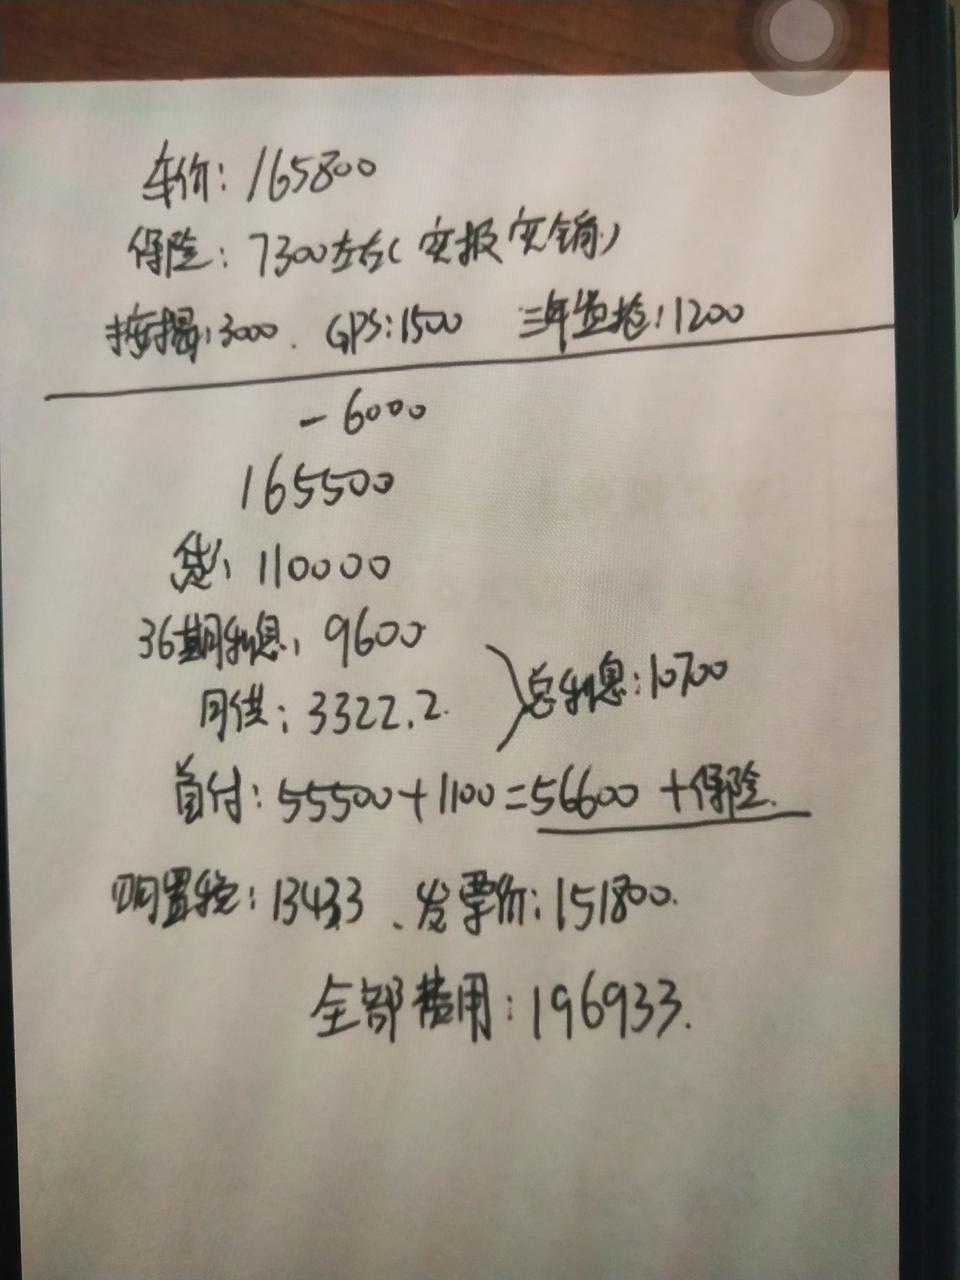 车价:165800
保险:7300左右(实报实销)
按揭:3000、GPS:1500 三年盗抢:1200
-6000
165500
贷:110000
36期利息:9600
月供:3322.2 总利息:10700
首付:55500+1100=56600+保险.
购置税:13433、发票价:151800.
全部费用:196933.